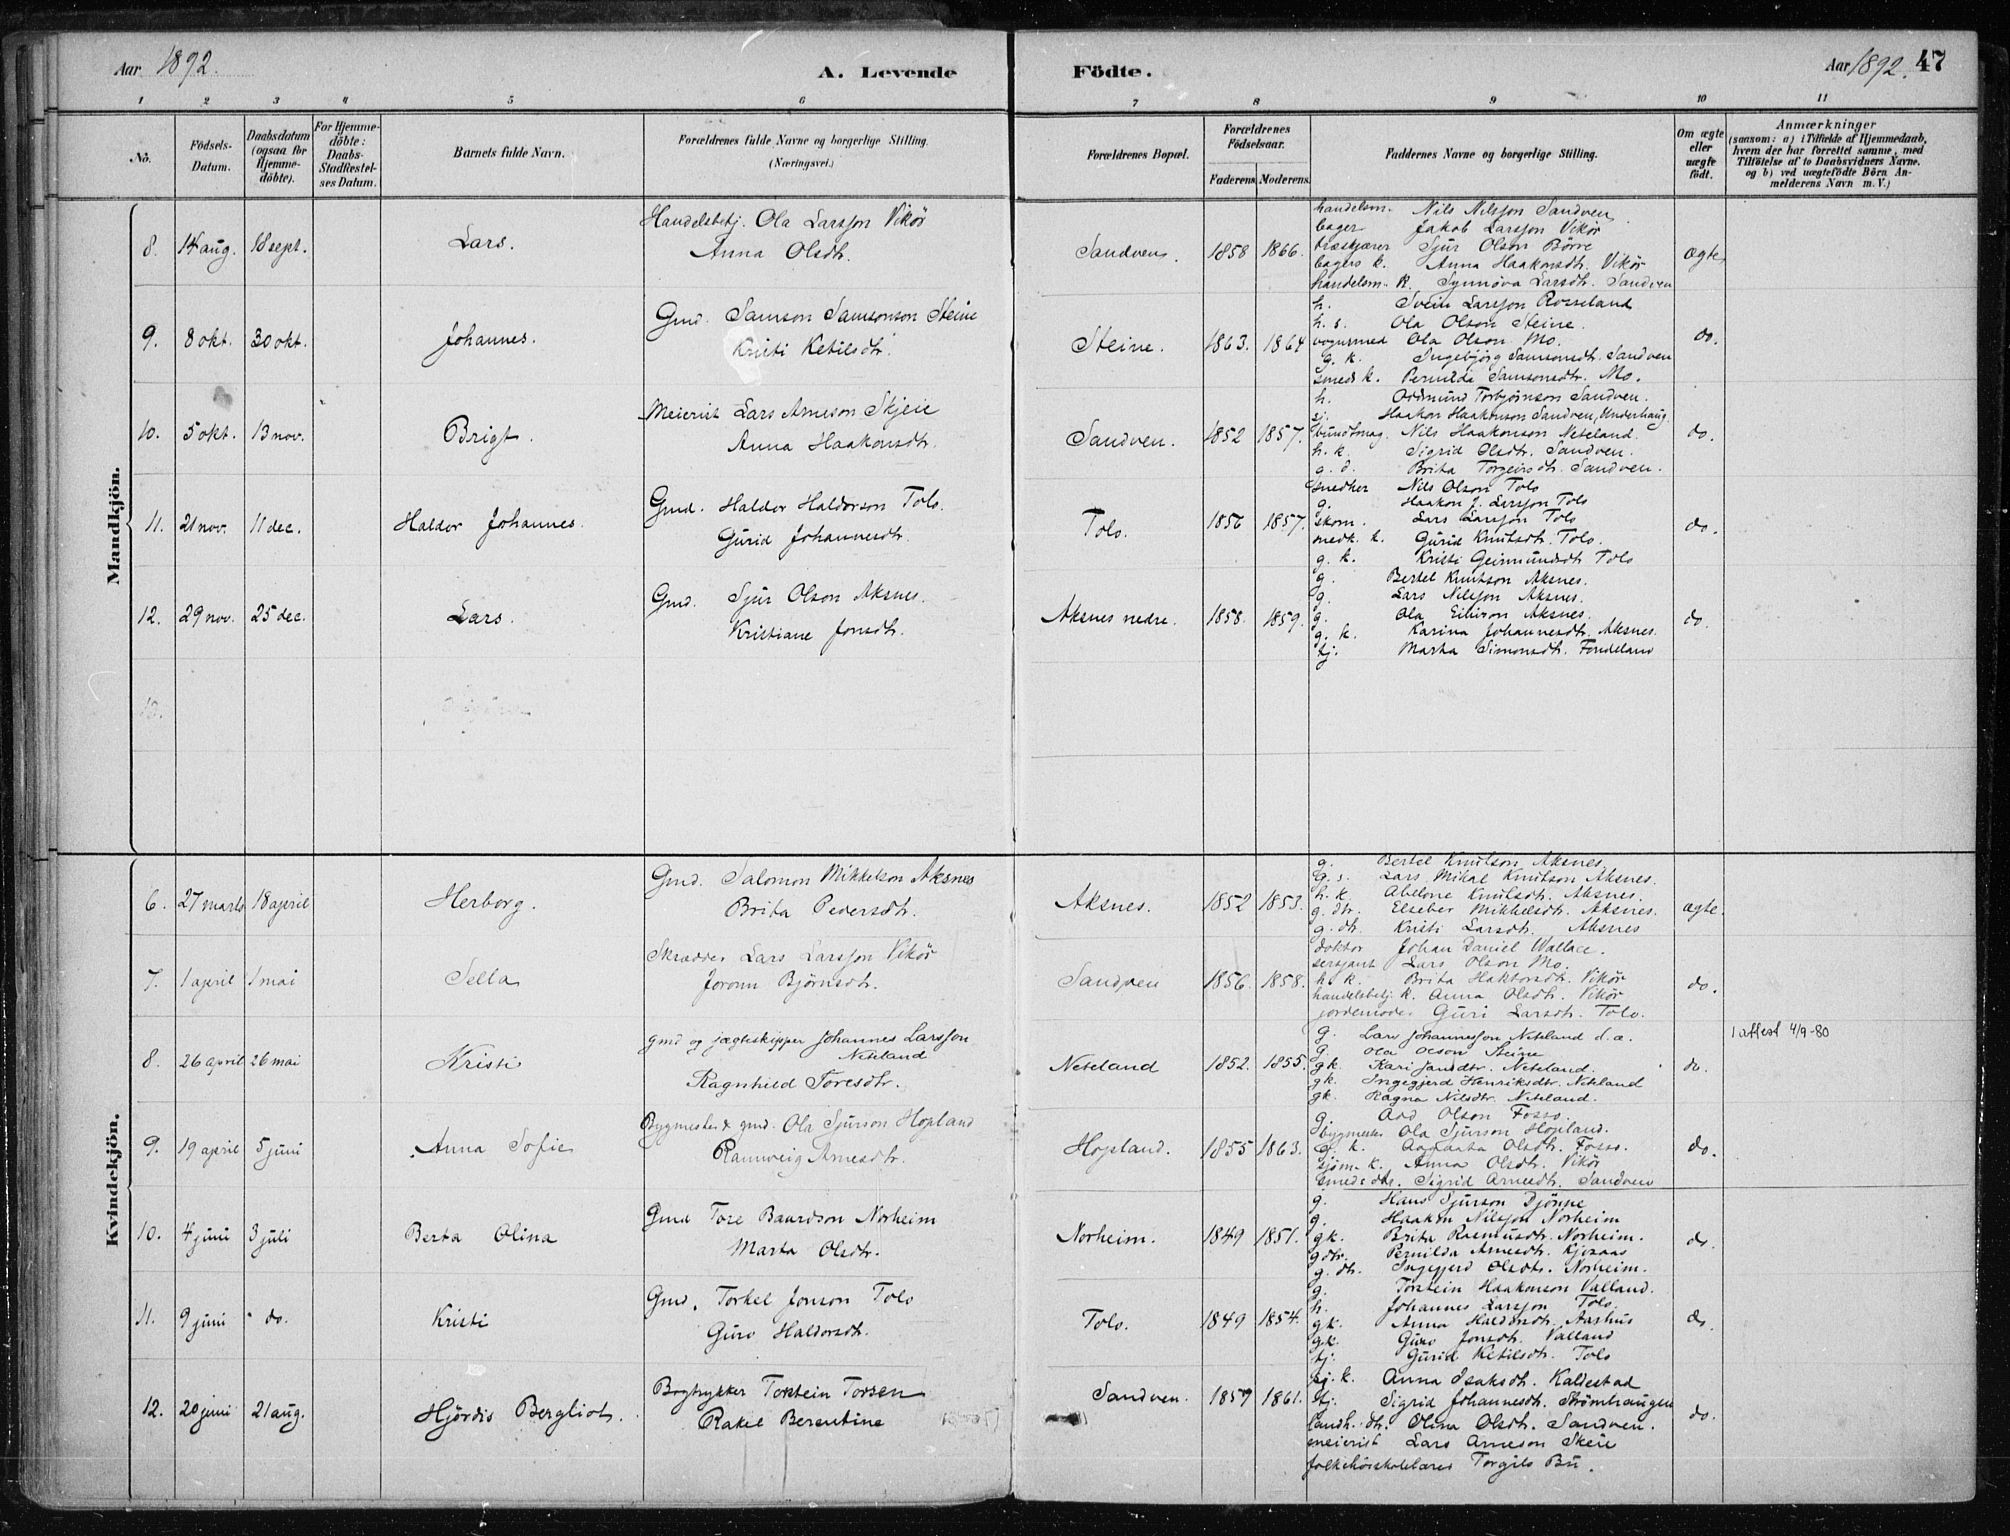 Aar 1892. A. Levende Födte. Aar 1892. 47
1 2 3 4 5 6 7 8 9 10 11
No. Födsels-Datum. Daabsdatum (ogsaa for Hjemme-döbte). For Hjemme-döbte: Daabs-Stadfæstel-ses Datum. Barnets fulde Navn. Forældrenes fulde Navne og borgerlige Stilling. (Næringsvei.) Forældrenes Bopæl. Forældrenes Födselsaar. Faderens Moderens. Faddernes Navne og borgerlige Stilling. Om ægte eller uægte født. Anmærkninger (saasom: a) i Tilfælde af Hjemmedaab, hvem der har forrettet samme, med Tilföielse af to Daabsvidners Navne. og b) ved uægtefödte Börn An-melderens Navn m. V.)
Mandkjön.
8. 14 aug. 18 sept. Lars. Handelsbetj. Ola Larsson Vikör
Anna Olsdtr. Sandven. 1858 1866. ægte
handelsm. Nils Nilsson Sandven
bager Jakob Larsson Vikör
træskjærer Sjur Olson Börve
bagers k. Anna Haakonsdtr. Vikör
handelsm. k. Synnöva Larsdtr. Sandven
9. 8 okt. 30 okt. Johannes. Gmd. Samson Samsonson Steine
Kristi Ketilsdtr. Steine. 1863. 1864 do.
h. Svein Larsson Rosseland
h. s. Ola Olson Steine.
vognsmed Ola Olson Mo.
g. k. Ingebjörg Samsonsdtr. Sandven
smeds k. Pernilda Samsonsdtr. Mo.
10. 5 okt. 13 nov. Brigt. Meierist Lars Arneson Skjeie
Anna Haakonsdtr. Sandven. 1852 1857. do.
h. Oddmund Torbjörnson Sandven.
sj. Haakon Haakonson Sandven, Underhaug.
bundtmag. Nils Haakonson Neteland.
h. k. Sigrid Olsdtr. Sandven.
g. d. Brita Torgeirsdtr. Sandven.
11. 21 nov. 11 dec. Haldor Johannes. Gmd. Haldor Haldorson Tolo.
Gurid Johannesdtr. Tolo. 1856 1857. do.
snedker Nils Olson Tolo
g. Haakon J. Larsson Tolo
skom. Lars Larsson Tolo
snedk. k. Gurid Knutsdtr. Tolo.
g. k. Kristi Geirmundsdtr Tolo
12. 29 nov. 25 dec. Lars. Gmd. Sjur Olson Aksnes.
Kristiane Jonsdtr. Aksnes nedre. 1858. 1859. do.
g. Bertel Knutson Aksnes.
g. Lars Nilsson Aksnes.
g. Ola Aksnes.
g. k. Karina Johannesdtr. Aksnes.
tj. Marta Simonsdtr. Fondeland
13.
Kvindekjön.
6. 27 marts 18 april Herborg. Gmd. Salomon Mikkelson Aksnes
Brita Pedersdtr. Aksnes. 1852 1853. ægte.
g. Bertel Knutson Aksnes.
g. s. Lars Mikal Knutson Aksnes.
h. k. Abelone Knutsdtr. Aksnes.
g. dtr. Elseber Mikkelsdtr. Aksnes.
g. dtr. Kristi Larsdtr. Aksnes
7. 1 april 1 mai Sella Skrædder Lars Larsson Vikör
Jorunn Björnsdtr. Sandven 1856. 1858. do.
doktor Johan Daniel Wallace.
sersjant Lars Olson Mo.
h. k. Brita Haktorsdtr. Vikör
handelsbetj. k. Anna Olsdtr. Vikör
jordemoder Guri Larsdtr. Tolo.
8. 26 april 26 mai Kristi gmd og jægteskipper Johannes Larsson
Neteland
Ragnhild Toresdtr. Neteland 1852. 1855. do. 1 attest 4/9-80
g. Lars Johannesson Neteland d. æ.
g. Ola Olson Steine
gk. Kari Jonsdtr. Neteland.
gk. Ingegjerd Henriksdtr. Neteland
gk. Ragna Nilsdtr. Neteland.
9. 19 april 5 juni Anna Sofie Bygmester & gmd. Ola Sjurson Hopland
Rannveig Arnesdtr. Hopland. 1855 1863. do.
g. Odd Olson Fosso.
bygmester Ola Sjurson Hopland.
g. k. Aagaata Olsdtr. Fosso.
sjöm. k. Anna Olsdtr. Vikör
smeds dtr. Sigrid Arnesdtr. Sandven
10. 4 juni 3 juli Berta Olina Gmd Tore Baardson Norheim
Marta Olsdtr. Norheim. 1849 1851. do.
g. Hans Sjurson Djönne
g. Haakon Nilsson Norheim
gk. Brita Rasmusdtr. Norheim.
gdtr. Pernilda Arnesdtr. Kjosaas
g. dtr. Ingegjerd Olsdtr. Norheim.
11. 9 juni do. Kristi Gmd. Torkel Jonson Tolo
Guro Haldorsdtr. Tolo. 1849 1854. do.
g. Torstein Haakonson Valland.
h. Johannes Larsson Tolo.
gk. Anna Haldorsdtr. Aarhus
gk. Guro Jonsdtr. Valland
tj. Gurid Ketilsdtr. Tolo
12. 20 juni 21 aug. Hjördis Bergliot. Bogtrykker Torstein Torsen
Rakel Berentine Sandven. 1859 1861. do.
sj. k. Anna Isaksdtr. Kaldestad
tj. Sigrid Johannesdtr. Strömhaugen
landh. dtr. Olina Olsdtr. Sandven.
meierist Lars Arneson Skeie
folkehöiskolelærer Torgils Bu.